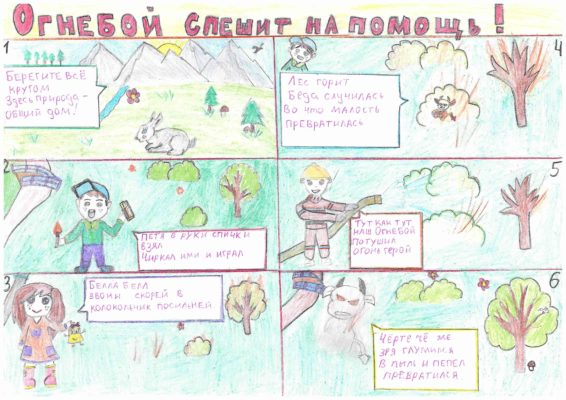 ОГНЕБОЙ СПЕШИТ НА ПОМОЩЬ!
1
БЕРЕГИТЕ ВСЁ
КРУГОМ
ЗДЕСЬ ПРИРОДА -
ОБЩИЙ ДОМ!
2
ПЕТЯ В РУКИ СПИЧКИ
ВЗЯЛ
ЧИРКАЛ ИМИ И ИГРАЛ
3
БЕЛЛА БЕЛЛ
ЗВОНИ СКОРЕЙ В
КОЛОКОЛЬЧИК ПОСИЛЬНЕЙ
4
ЛЕС ГОРИТ
БЕДА СЛУЧИЛАСЬ
ВО ЧТО МАЛОСТЬ
ПРЕВРАТИЛАСЬ
5
ТУТ КАК ТУТ
НАШ ОГНЕБОЙ
ПОТУШИЛ
ОГОНЬ ГЕРОЙ
6
ЧЕРТЕЧЁ ЖЕ
ЗРЯ ГЛУМИЛСЯ
В ПЫЛЬ И ПЕПЕЛ
ПРЕВРАТИЛСЯ